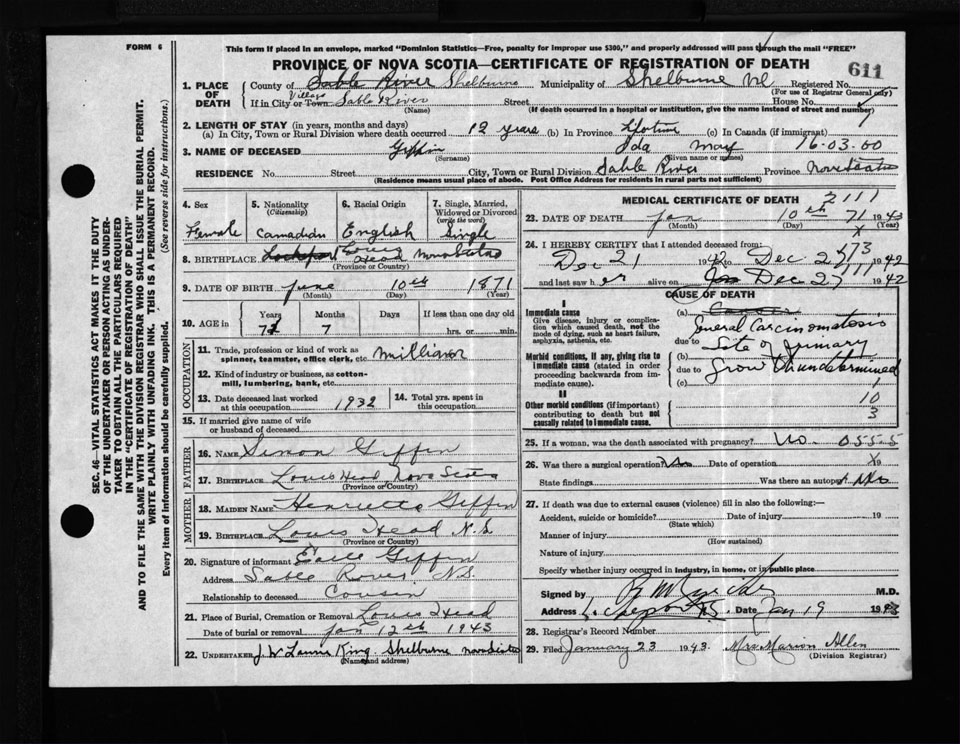 FORM 6
This form if placed in an envelope, marked "Dominion Statistics—Free, penalty for improper use $300," and properly addressed will pass through the mail "FREE"
PROVINCE OF NOVA SCOTIA—CERTIFICATE OF REGISTRATION OF DEATH
611
1. PLACE OF DEATH
County of Sable River Shelburne Municipality of Shelburne Registered No.
(For use of Registrar General only)
If in City or Town Village Sable River Street House No.
(Name) (If death occurred in a hospital or institution, give the name instead of street and number)
2. LENGTH OF STAY (in years, months and days)
(a) In City, Town or Rural Division where death occurred 12 years (b) In Province Lifetime (c) In Canada (if immigrant)
3. NAME OF DECEASED Giffin Ida May 16-03-00
(Surname) (Given name or names)
RESIDENCE No. Street City, Town or Rural Division Sable River Province Nova Scotia
(Residence means usual place of abode. Post Office Address for residents in rural parts not sufficient)
4. Sex Female
5. Nationality (Citizenship) Canadian
6. Racial Origin English
7. Single, Married, Widowed or Divorced (write the word) Single
8. BIRTHPLACE Lockeport Louis Head Nova Scotia
(Province or Country)
9. DATE OF BIRTH June 10th 1871
(Month) (Day) (Year)
10. AGE in Years Months Days If less than one day old
7 hrs. or min.
OCCUPATION
11. Trade, profession or kind of work as spinner, teamster, office clerk, etc.
12. Kind of industry or business, as cotton-mill, lumbering, bank, etc.
13. Date deceased last worked at this occupation 1932
14. Total yrs. spent in this occupation
15. If married give name of wife or husband of deceased
FATHER
16. NAME Simon Giffin
17. BIRTHPLACE Louis Head Nova Scotia
(Province or Country)
MOTHER
18. MAIDEN NAME Henrietta Giffin
19. BIRTHPLACE Louis Head N.S.
(Province or Country)
20. Signature of informant Giffin
Address Sable River N.S.
Relationship to deceased Cousin
21. Place of Burial, Cremation or Removal Louis Head
Date of burial or removal Jan 12th 1943
22. UNDERTAKER King Shelburne Nova Scotia
(Name and address)
MEDICAL CERTIFICATE OF DEATH
23. DATE OF DEATH Jan 10th 1943
(Month) (Day) (Year)
24. I HEREBY CERTIFY that I attended deceased from:
Dec 21 1942 to Dec 27 1942
and last saw her alive on Dec 27 1942
CAUSE OF DEATH
I
Immediate cause
Give disease, injury or complication which caused death, not the mode of dying, such as heart failure, asphyxia, asthenia, etc.
Morbid conditions, if any, giving rise to immediate cause (stated in order proceeding backwards from immediate cause).
II
Other morbid conditions (if important) contributing to death but not causally related to immediate cause.
(a) Cancer
General Carcinomatosis
due to Site of primary
(b)
due to growth undetermined
(c)
10
3
25. If a woman, was the death associated with pregnancy? No. 0555
26. Was there a surgical operation? Date of operation 19
State findings Was there an autopsy? No
27. If death was due to external causes (violence) fill in also the following:—
Accident, suicide or homicide? Date of injury 19
(State which)
Manner of injury
(How sustained)
Nature of injury
Specify whether injury occurred in industry, in home, or in public place
Signed by M.D.
Address Lockeport N.S. Date Jan 19 1943
28. Registrar's Record Number
29. Filed January 23 1943. Mrs Marion Allen
(Division Registrar)
SEC. 46—VITAL STATISTICS ACT MAKES IT THE DUTY OF THE UNDERTAKER OR PERSON ACTING AS UNDERTAKER TO OBTAIN ALL THE PARTICULARS REQUIRED IN THE "CERTIFICATE OF REGISTRATION OF DEATH" AND TO FILE THE SAME WITH THE DIVISION REGISTRAR WHO SHALL ISSUE THE BURIAL PERMIT.
WRITE PLAINLY WITH UNFADING INK. THIS IS A PERMANENT RECORD.
Every item of information should be carefully supplied. (See reverse side for instructions.)